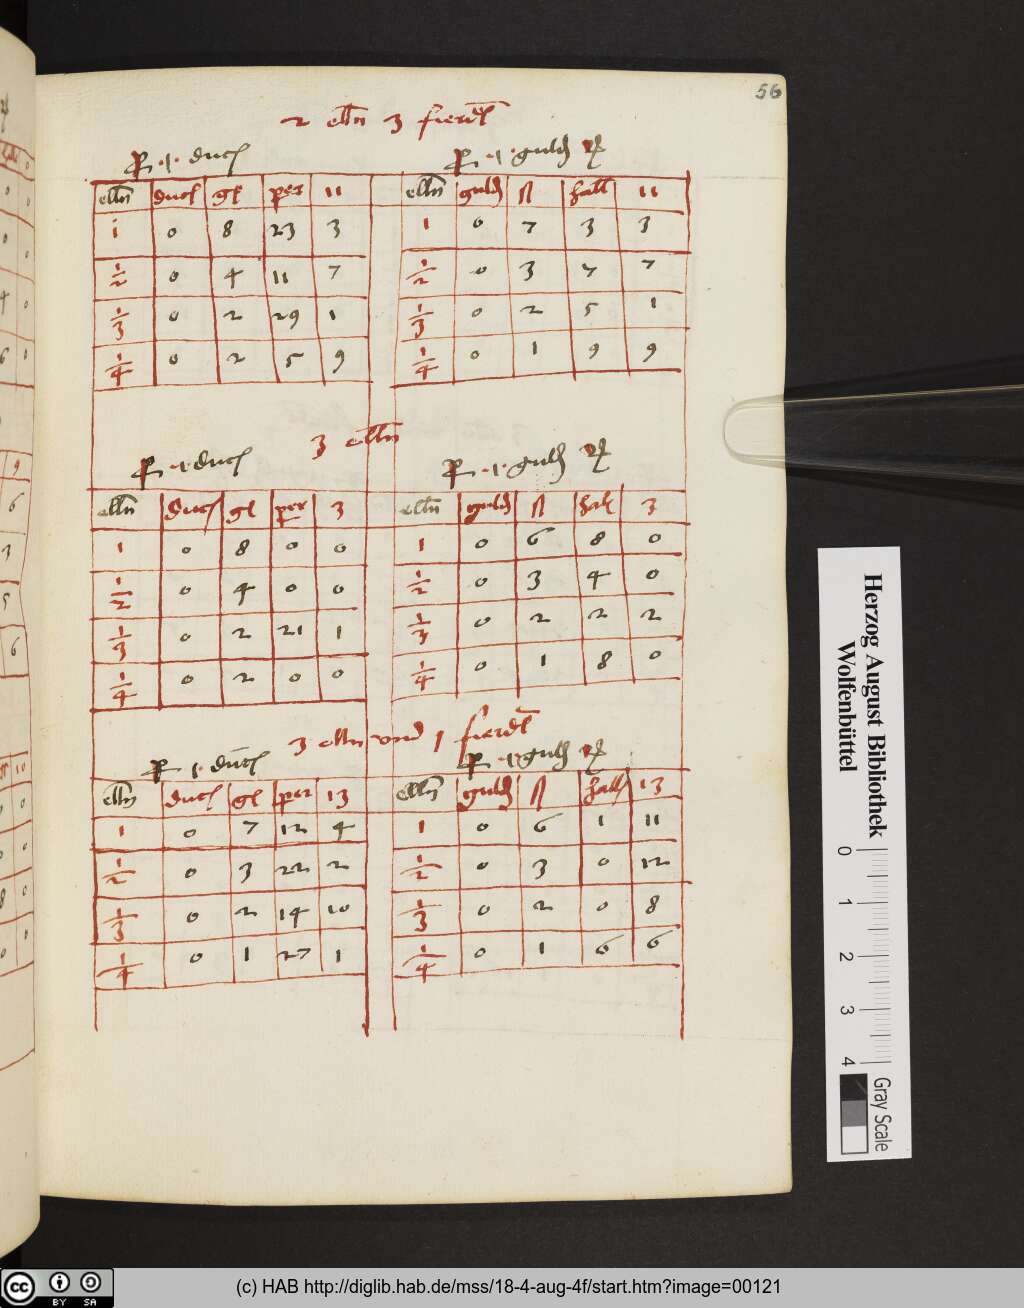 56
2 elln 3 fierdel
p 1 duc
elln duc gl per 11
1 0 8 23 3
1/2 0 4 11 7
1/3 0 2 29 1
1/4 0 2 5 9
p 1 guld
elln guld ß hall 11
1 0 7 3 3
1/2 0 3 7 7
1/3 0 2 5 1
1/4 0 1 9 9
3 elln
p 1 duc
elln duc gl per 3
1 0 8 0 0
1/2 0 4 0 0
1/3 0 2 21 1
1/4 0 2 0 0
p 1 guld
elln guld ß hal 3
1 0 6 8 0
1/2 0 3 4 0
1/3 0 2 2 2
1/4 0 1 8 0
3 elln vnd 1 fierdel
p 1 duc
elln duc gl per 13
1 0 7 12 4
1/2 0 3 22 2
1/3 0 2 14 10
1/4 0 1 27 1
p 1 guld
elln guld ß hall 13
1 0 6 1 11
1/2 0 3 0 12
1/3 0 2 0 8
1/4 0 1 6 6
Herzog August Bibliothek
Wolfenbüttel
0 1 2 3 4
Gray Scale
cc BY SA
(c) HAB http://diglib.hab.de/mss/18-4-aug-4f/start.htm?image=00121